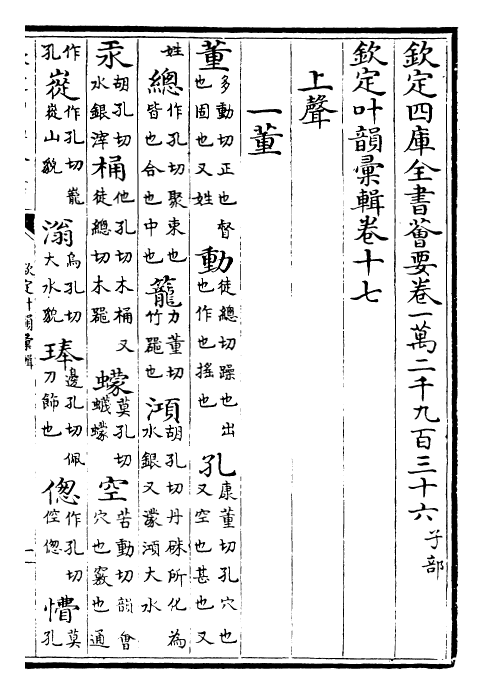 欽定四庫全書薈要卷一萬二千九百三十六 子部
欽定叶韻彙輯卷十七
上聲
一董
董 多動切正也督也固也又姓 動 徒總切躁也出也作也搖也 孔 康董切孔穴也又空也甚也又
姓 總 作孔切聚束也皆也合也中也 籠 力董切竹器也 澒 胡孔切丹硃所化為水銀又濛澒大水
汞 胡孔切水銀滓 桶 他孔切木桶又徒總切木器 蠓 莫孔切蠛蠓 空 苦動切韻會穴也竅也通
作孔 嵸 作孔切巃嵸山貌 滃 烏孔切大水貌 琫 邊孔切佩刀飾也 偬 作孔切倥偬 懵 莫孔
欽定叶韻彙輯
一